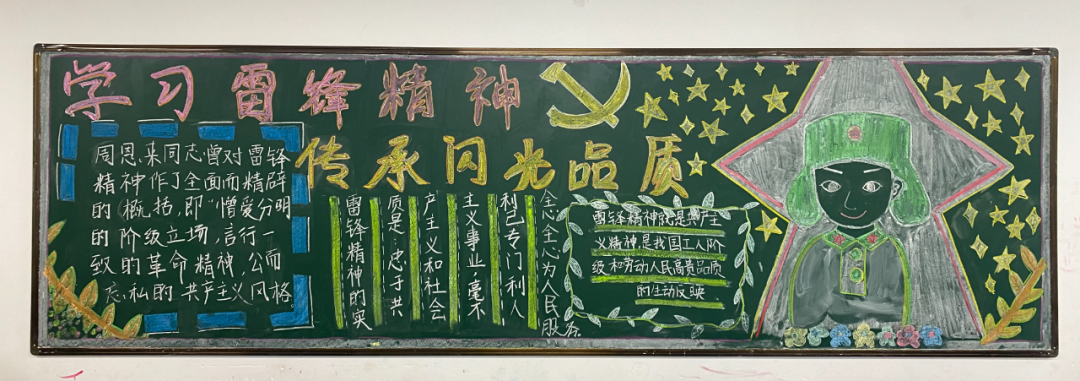 学习雷锋精神
传承闪光品质
周恩来同志曾对雷锋
精神作了全面而精辟
的概括,即“憎爱分明
的阶级立场,言行一
致的革命精神,公而
忘私的共产主义风格
雷锋精神的实
质是:忠于共
产主义和社会
主义事业,毫不
利己专门利人
全心全心为人民服务
雷锋精神就是共产主
义精神是我国工人阶
级和劳动人民高贵品质
的生动反映